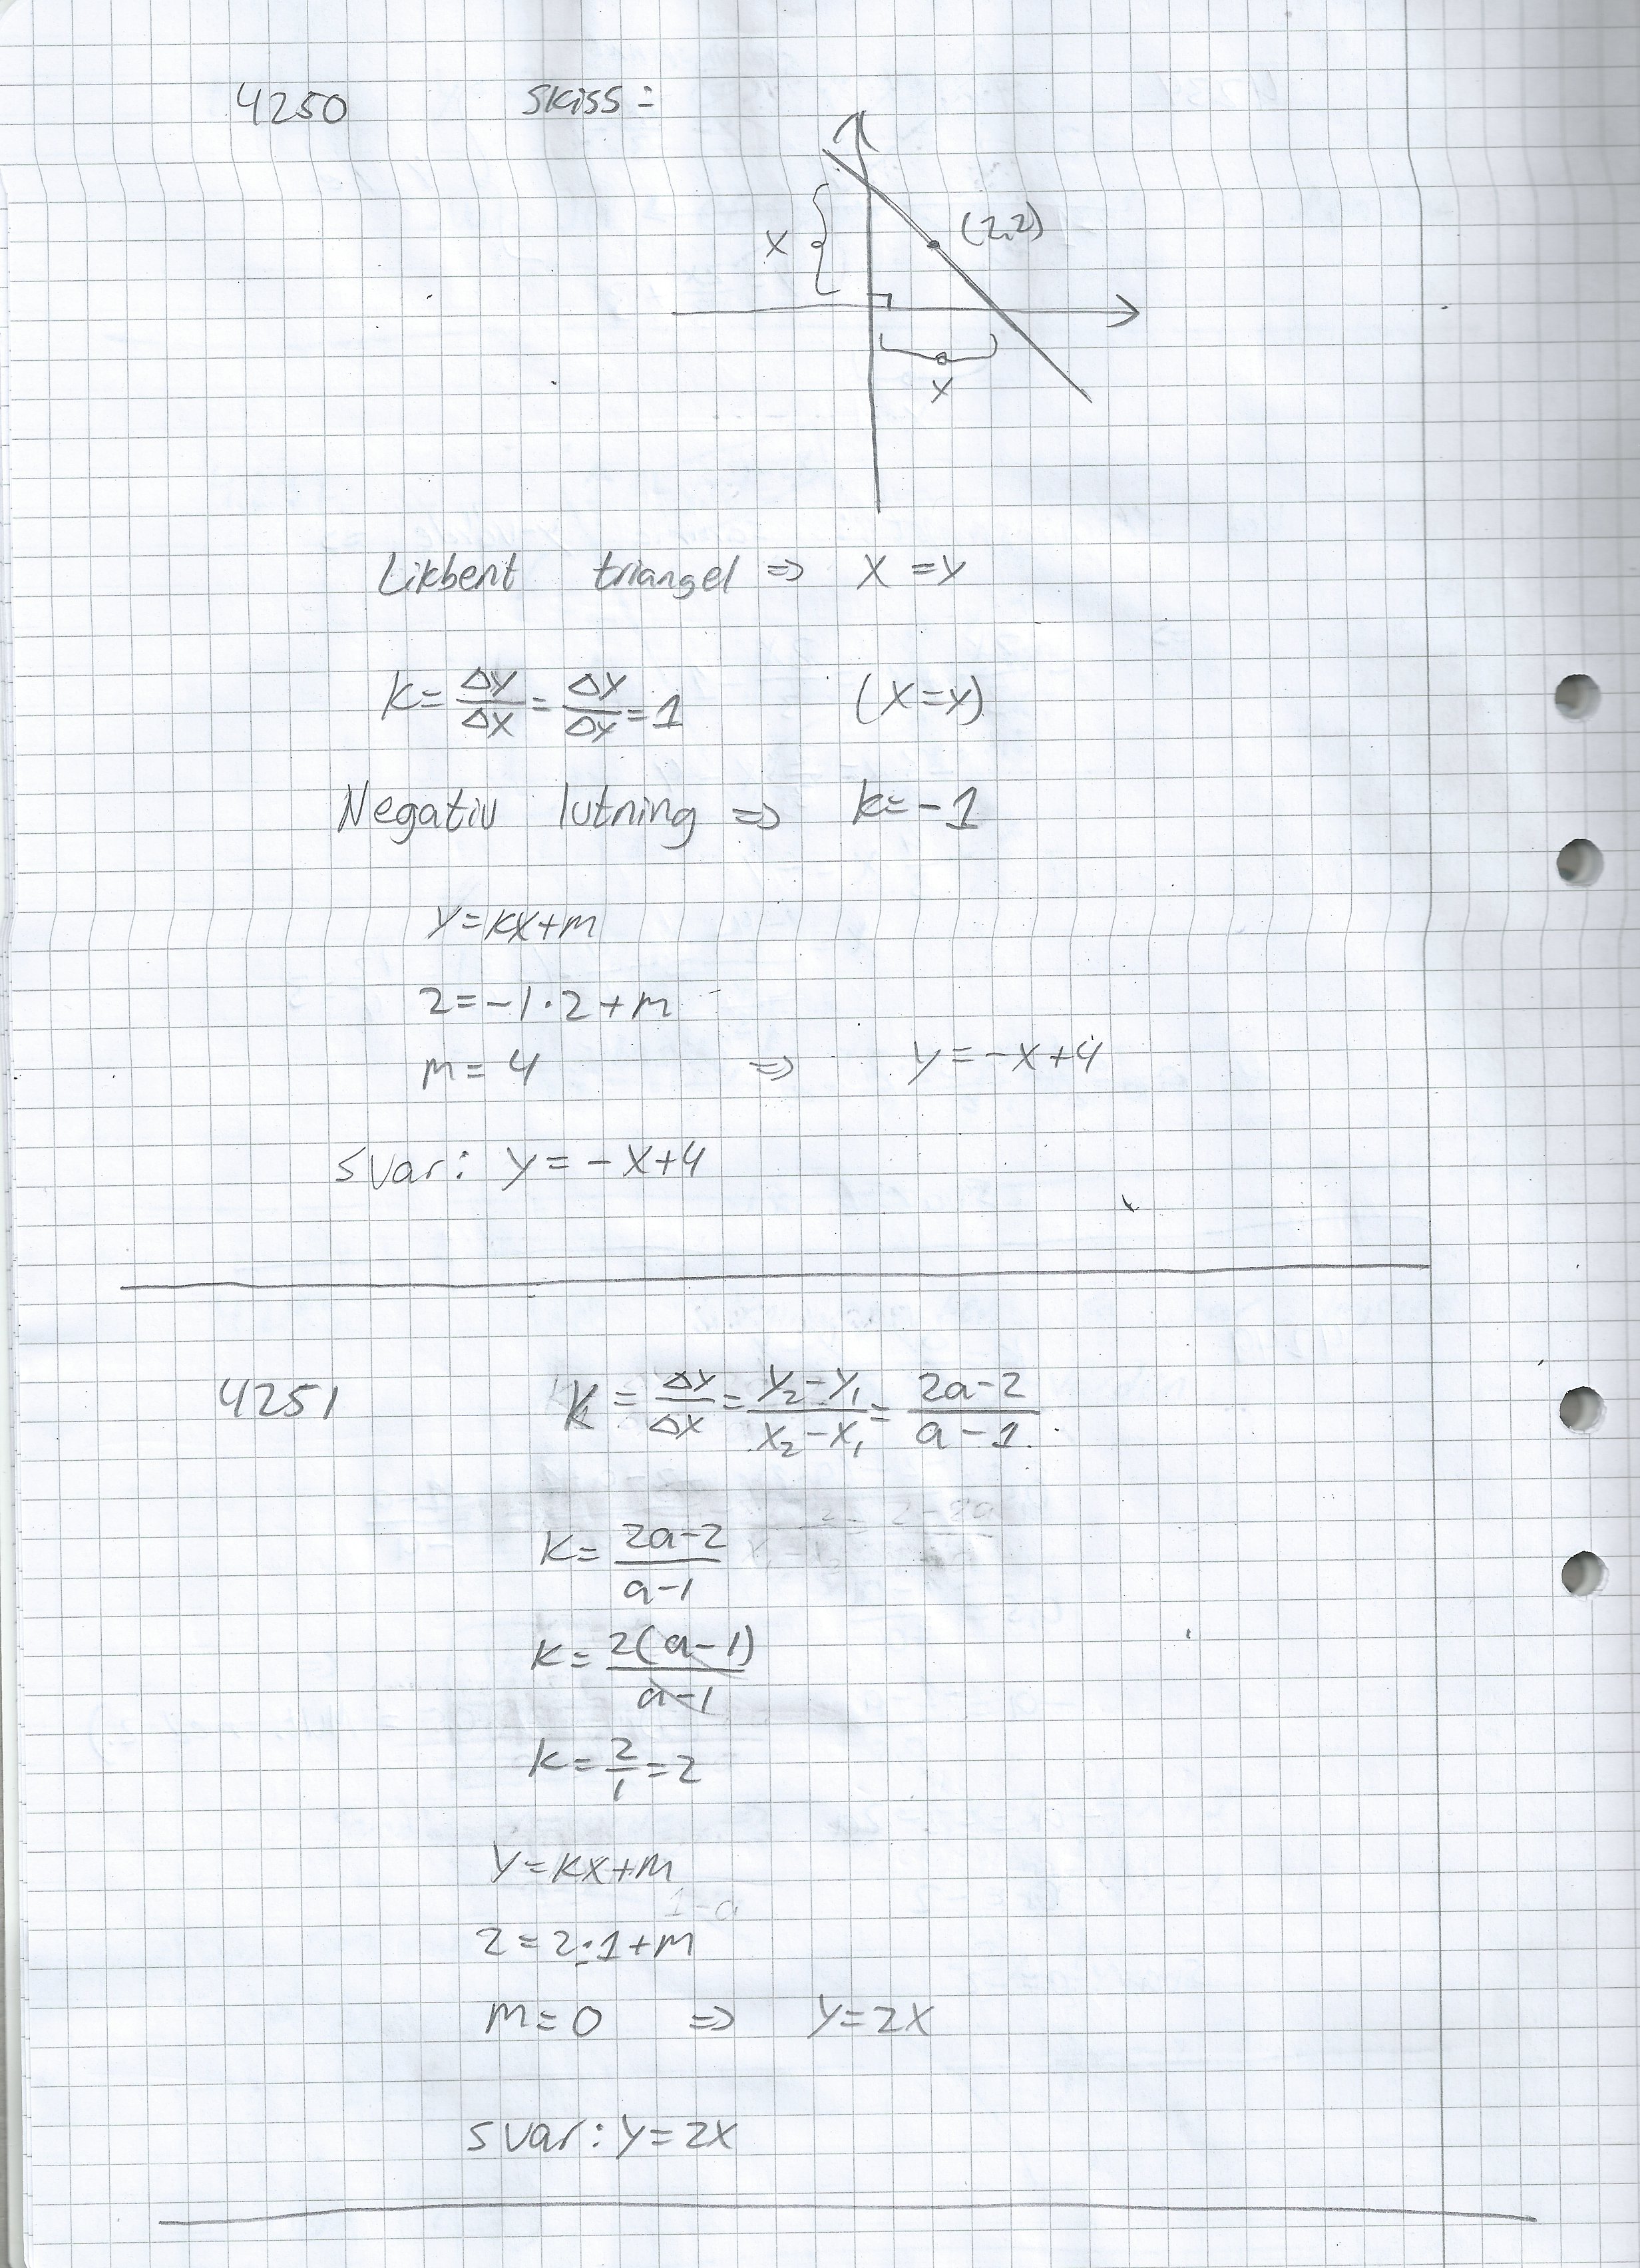 4250 skiss:
X (2,2)
X
Likbent triangel => X = y
k = Δy/Δx = Δy/Δy = 1 (X=y)
Negativ lutning => k=-1
y=kx+m
2=-1·2+m
m=4 => y=-x+4
svar: y=-x+4
4251 k = Δy/Δx = y₂-y₁/x₂-x₁ = 2a-2/a-1
k= 2a-2/a-1
k= 2(a-1)/a-1
k= 2/1 =2
y=kx+m
2=2·1+m
m=0 => y=2x
svar: y=2x